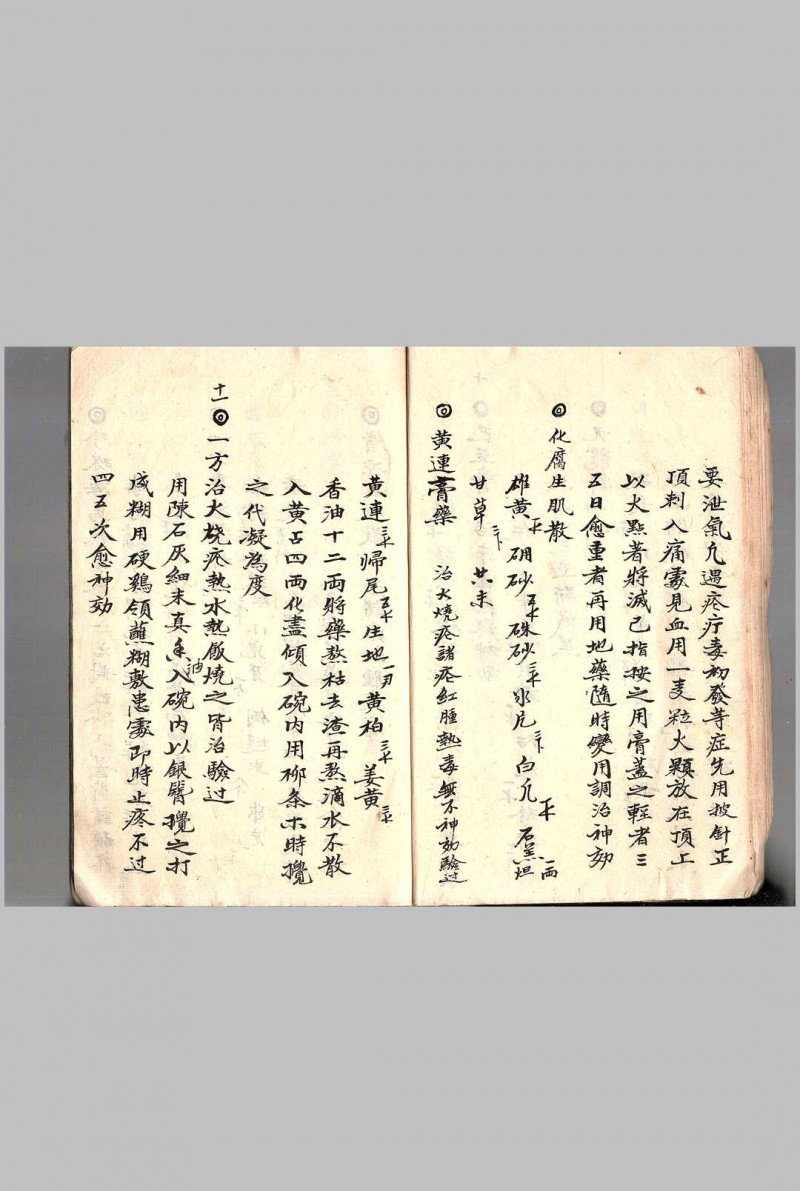 要泄氣凢遇瘡疔毒初發等症先用披針正
頂刺入痛處見血用一麦粒火顆放在頂上
以火點著將滅已指按之用膏蓋之輕者三
五日愈重者再用地藥隨時變用調治神効
化腐生肌散
雄黄 硼砂 硃砂 氷片 白凢 石羔 一两
甘草 共末
黄連膏藥 治火燒瘡諸疮红腫热毒無不神効驗过
黄連 帰尾 生地 黄柏 姜黄
香油十二両將藥熬枯去渣再熬滴水不散
入黄占四両化盡傾入碗内用柳条木時攪
之代凝為度
十一 一方治火燒疮熱水熱飯燒之皆治驗过
用陳石灰細末真香油入碗内以銀簪攪之打
成糊用硬鷄翎蘸糊敷患處即時止疼不过
四五次愈神効